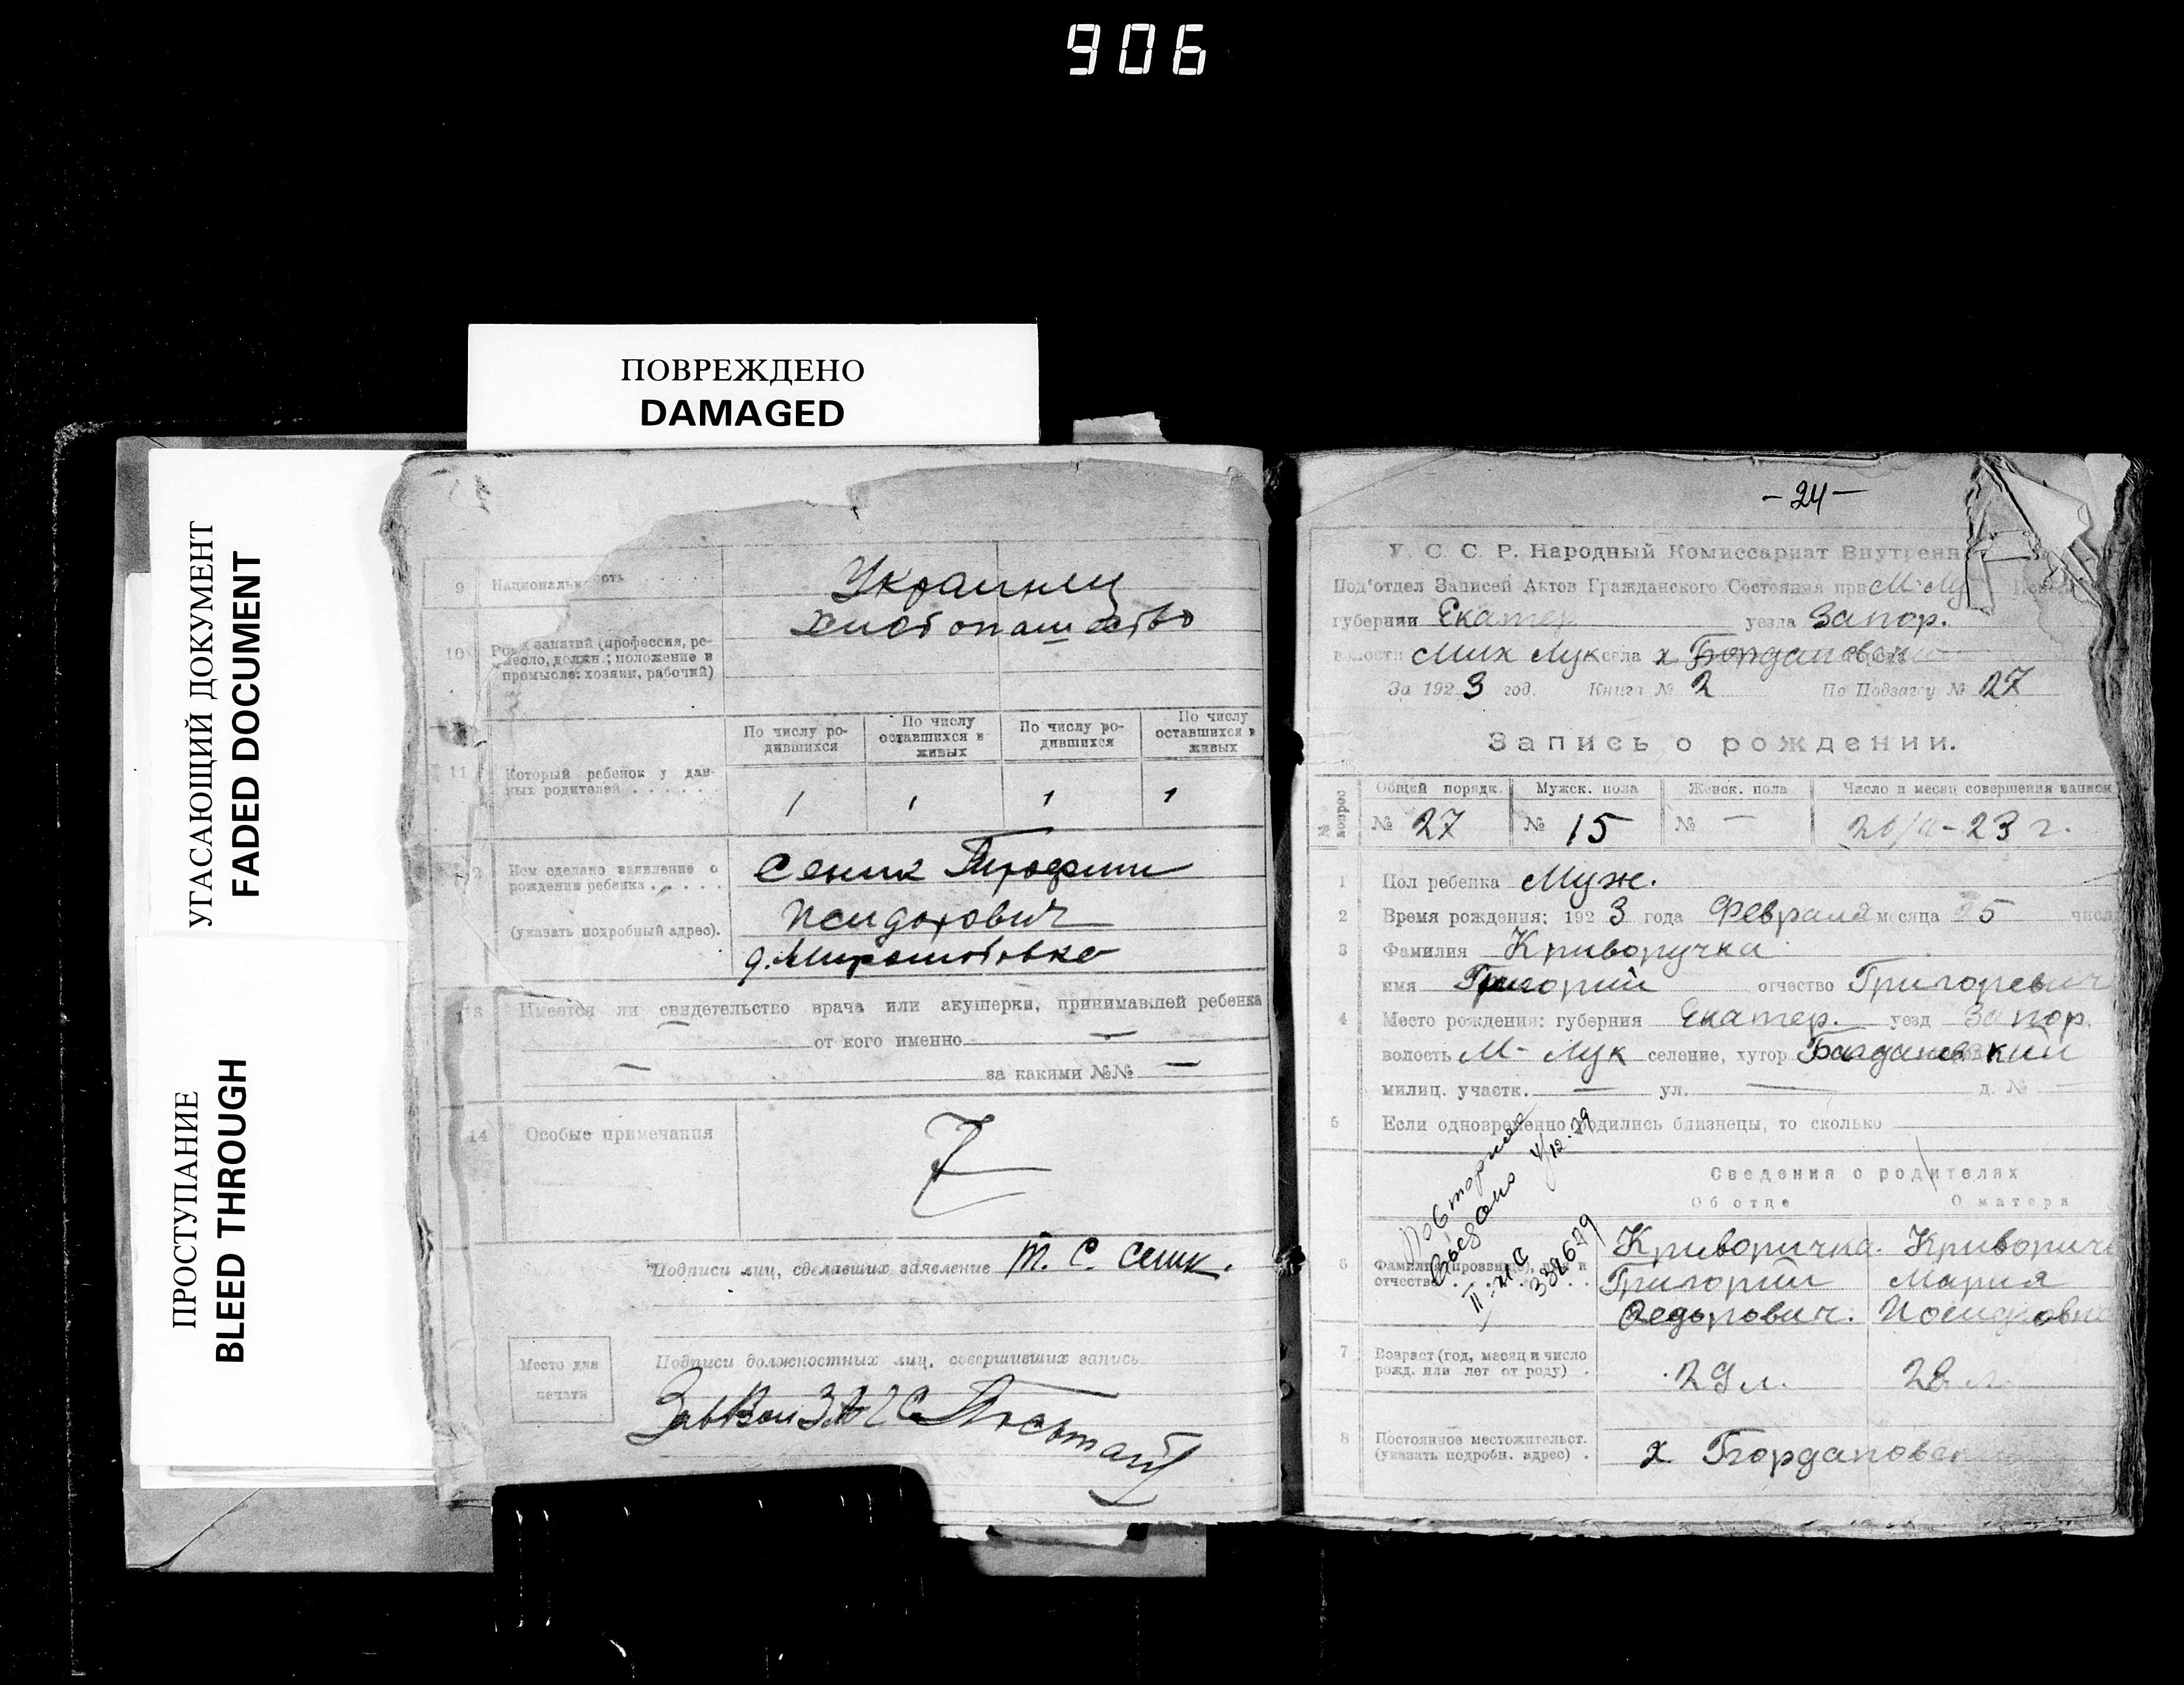 906
ПОВРЕЖДЕНО
DAMAGED
УГАСАЮЩИЙ ДОКУМЕНТ
FADED DOCUMENT
ПРОСТУПАНИЕ
BLEED THROUGH
9 Национальность
Украинец
10 Род занятий (профессия, ре-
месло, должн.; положение в
промысле: хозяин, рабочий)
Хлебопашество
По числу ро-
дившихся
По числу
оставшихся в
живых
По числу ро-
дившихся
По числу
оставшихся в
живых
11 Который ребенок у дан-
ных родителей . . . . . .
1 1 1 1
12 Кем сделано заявление о
рождении ребенка . . . . .
(указать подробный адрес).
Сеник Трофим
Исидорович
13 Имеется ли свидетельство врача или акушерки, принимавшей ребенка
— от кого именно —
— за какими №№ —
14 Особые примечания
Подписи лиц, сделавших заявление Т. С. Сеник.
Место для
печати
Подписи должностных лиц, совершивших запись
-24-
У. С. С. Р. Народный Комиссариат Внутренн
Под'отдел Записей Актов Гражданского Состояния при М-Лу
губернии Екатер уезда Запор.
волости Мих Лук села х
За 1923 год. Книга № 2 По Подзагсу № 27
Запись о рождении.
№ вопрос Общий порядк. Мужск. пола Женск. пола Число и месяц совершения записи
№ 27 № 15 № — 23 г.
1 Пол ребенка Муж.
2 Время рождения: 1923 года Февраля месяца 5 числ
3 Фамилия Криворучка
имя Григорий отчество Григоревич
4 Место рождения: губерния Екатер. уезд Запор.
волость М-Лук селение, хутор
милиц. участк. — ул. — д. № —
5 Если одновременно родились близнецы, то сколько
Повторное
II-ЖС
332679
Сведения о родителях
Об отце О матери
6 Фамилия (прозвище), имя и
отчество
Криворичка Криворичк
Григорий Мария
Федорович.
7 Возраст (год, месяц и число
рожд. или лет от роду) .
29 л. 28 л.
8 Постоянное местожительст.
(указать подробн. адрес) .
х